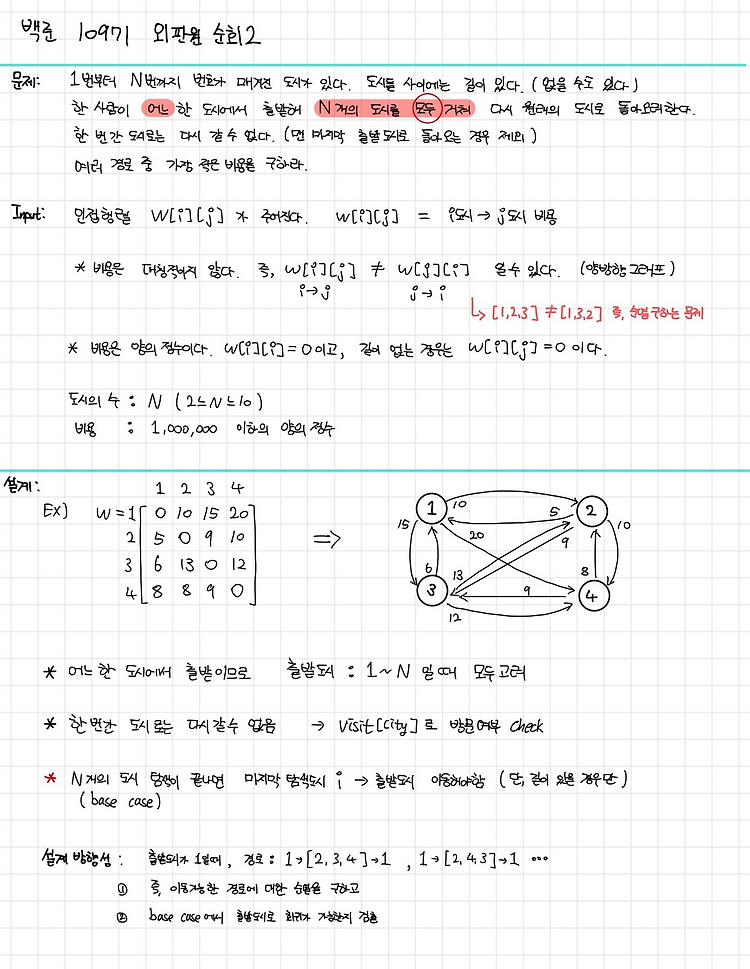 백준 10971 외판원 순회2
문제: 1번부터 N번까지 번호가 매겨진 도시가 있다. 도시들 사이에는 길이 있다. (없을 수도 있다)
한 사람이 어느 한 도시에서 출발해 N개의 도시를 모두 거쳐 다시 원래의 도시로 돌아오려한다.
한 번 간 도시로는 다시 갈 수 없다. (단 마지막 출발 도시로 돌아오는 경우 제외)
여러 경로 중 가장 적은 비용을 구하라.
Input: 인접행렬 W[i][j] 가 주어진다. W[i][j] = i도시 → j도시 비용
* 비용은 대칭적이지 않다. 즉, W[i][j] ≠ W[j][i] 일 수 있다. (양방향 그래프)
i→j j→i
↳ [1,2,3] ≠ [1,3,2] 즉, 순열 구하는 문제
* 비용은 양의 정수이다. W[i][i]=0 이고, 길이 없는 경우는 W[i][j]=0 이다.
도시의 수 : N (2≤N≤10)
비용 : 1,000,000 이하의 양의 정수
설계:
1 2 3 4
Ex) W = 1 0 10 15 20 ⇒
2 5 0 9 10
3 6 13 0 12
4 8 8 9 0
1 10 5 2
15 20 9 10
6 13 9 8
3 12 4
* 어느 한 도시에서 출발이므로 출발도시 : 1~N 일때 모두 고려
* 한 번 간 도시로는 다시 갈 수 없음 → Visit[city]로 방문여부 check
* N개의 도시 탐색이 끝나면 마지막 탐색도시 i → 출발도시 이동해야함 (단, 길이 있을 경우만)
(base case)
설계 방향성 : 출발도시가 1일때, 경로 : 1→[2,3,4]→1 , 1→[2,4,3]→1 ...
① 즉, 이동가능한 경로에 대한 순열을 구하고
② base case에서 출발도시로 회귀가 가능한지 검출